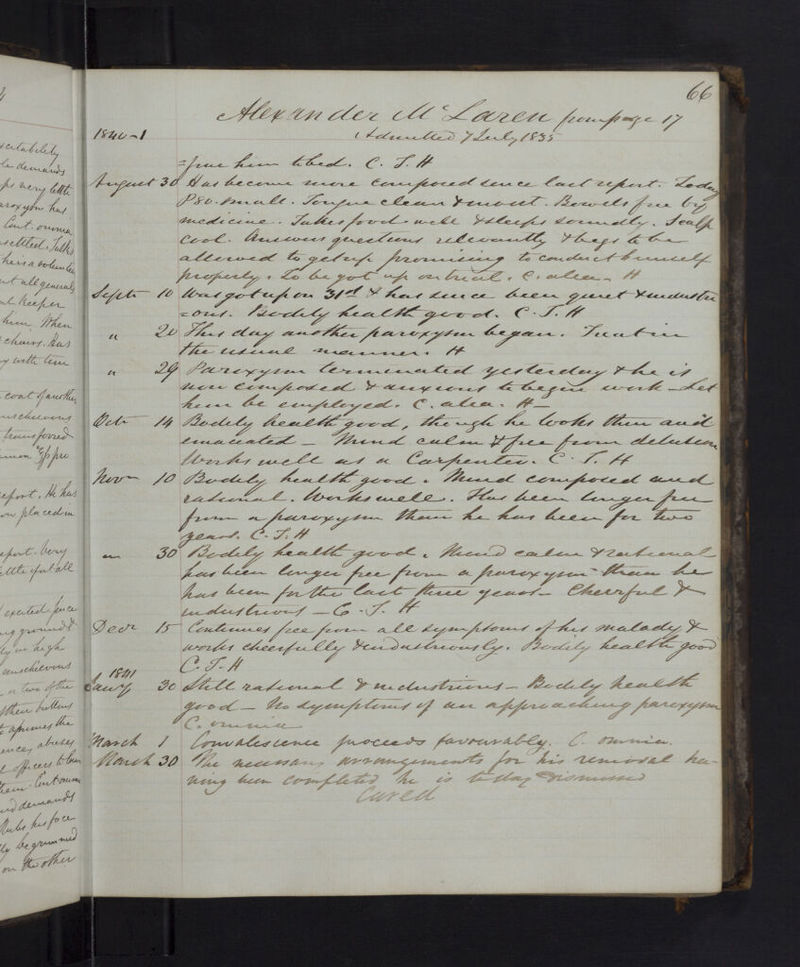 66
Alexander McLaren from page 17
1840-1
Admitted 7 July 1835
=fine him to bed. C. T. H
August 30 Has become more composed since last report. Today
P80. small. Tongue clean & moist. Bowels free by
medicine. Takes food well & sleeps soundly. Scalp
cool. Answers questions relevantly & begs to be
allowed to get up promising to conduct himself
properly. To be got up on trial. C. alia. H
Septr 10 Was got up on 31st & has since been quiet & industri
=ous. Bodily health good. C. T. H
" 20 This day another paroxysm began. Treat in
the usual manner. H
" 29 Paroxysm terminated yesterday & he is
now composed & anxious to begin work - Let
him be employed. C. alia. H-
Octr 14 Bodily health good, though he looks thin and
emaciated - Mind calm & free from delusion
Works well as a Carpenter. C. T. H
Novr 10 Bodily health good. Mind composed and
rational. Works well. Has been longer free
from a paroxysm than he has been for two
years. C. T. H
" 30 Bodily health good. Mind calm & rational
has been longer free from a paroxysm than he
has been for the last three years - Cheerful &
industrious - C. T. H
Decr 15 Continues free from all symptoms of his malady &
works cheerfully & industriously. Bodily health good
C. T. H
1841
Jany 30 Still rational & industrious - Bodily health
good - No symptoms of an approaching paroxysm
C. omnia
March 1 Convalescence proceeds favourably. C. omnia.
March 30 The necessary arrangements for his removal ha-
ving been completed he is today dismissed
Cured